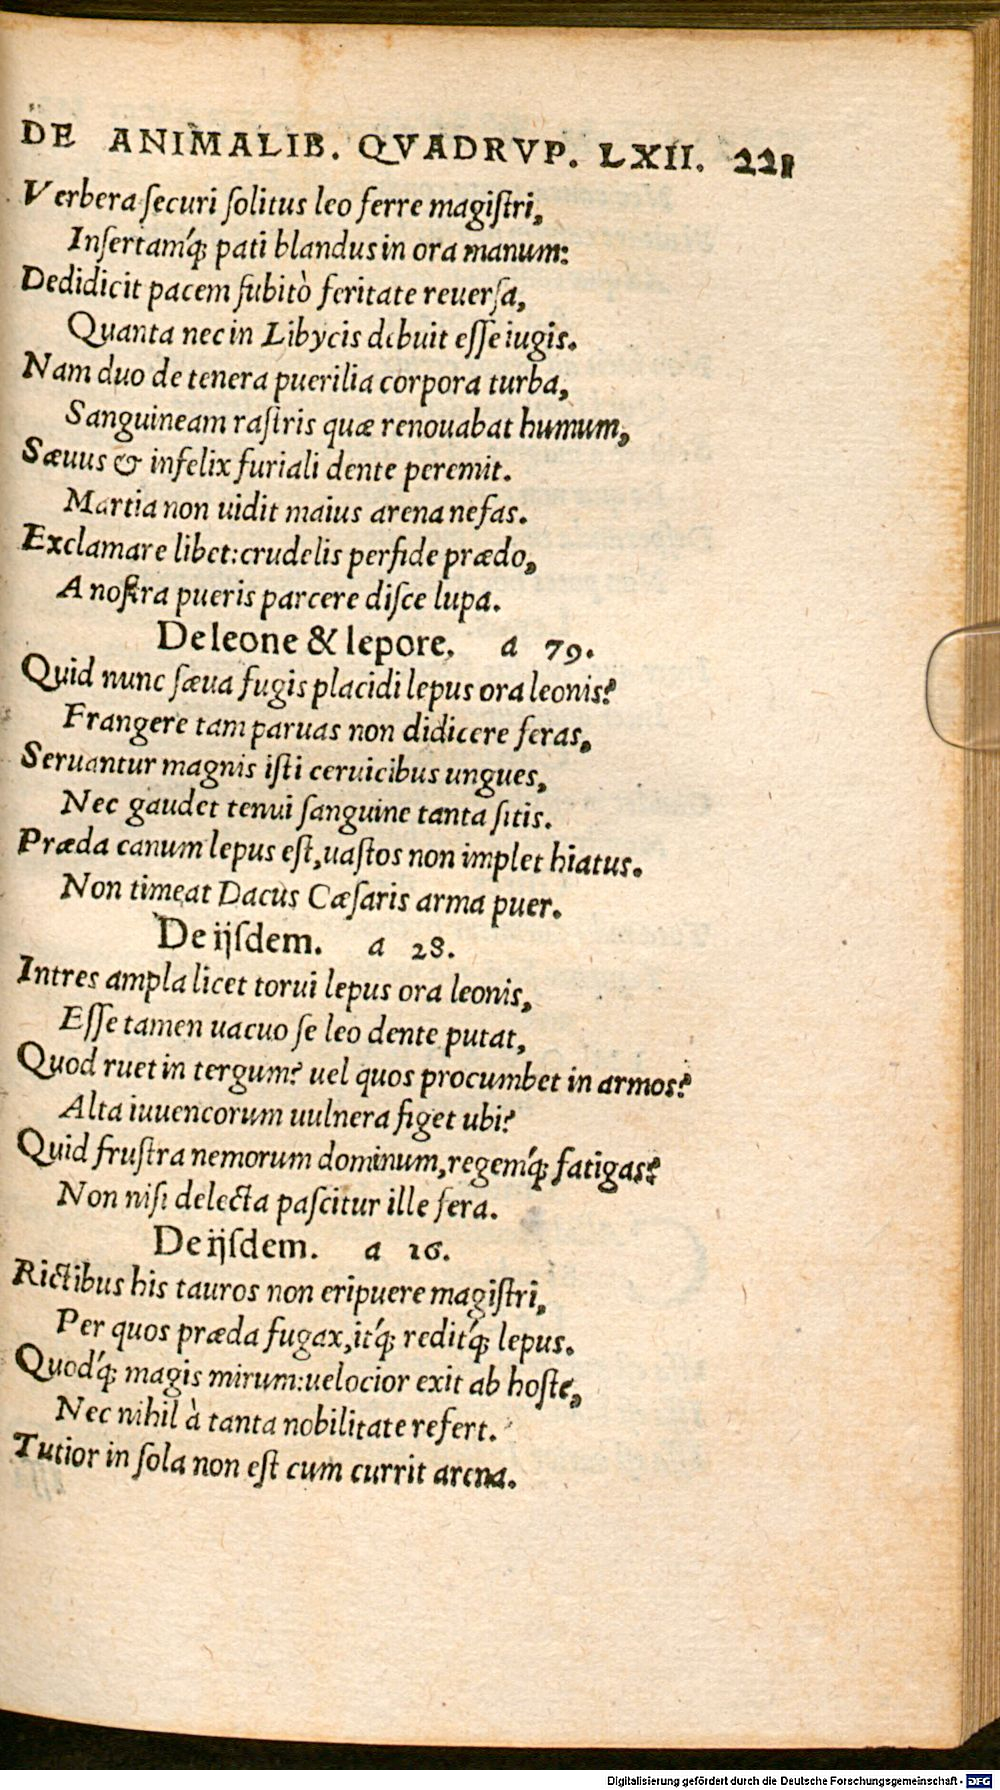 DE ANIMALIB. QVADRVP. LXII. 221
Verbera securi solitus leo ferre magistri,
Insertamq́; pati blandus in ora manum:
Dedidicit pacem subitò feritate reuersa,
Quanta nec in Libycis debuit esse iugis.
Nam duo de tenera puerilia corpora turba,
Sanguineam rastris quæ renouabat humum,
Sæuus & infelix furiali dente peremit.
Martia non uidit maius arena nefas.
Exclamare libet: crudelis perfide prædo,
A nostra pueris parcere disce lupa.
De leone & lepore. a 79.
Quid nunc sæua fugis placidi lepus ora leonis?
Frangere tam paruas non didicere feras,
Seruantur magnis isti ceruicibus ungues,
Nec gaudet tenui sanguine tanta sitis.
Præda canum lepus est, uastos non implet hiatus.
Non timeat Dacus Cæsaris arma puer.
De ijsdem. a 28.
Intres ampla licet torui lepus ora leonis,
Esse tamen uacuo se leo dente putat,
Quod ruet in tergum? uel quos procumbet in armos?
Alta iuuencorum uulnera figet ubi?
Quid frustra nemorum dominum, regemq́; fatigas?
Non nisi delecta pascitur ille fera.
De ijsdem. a 16.
Rictibus his tauros non eripuere magistri,
Per quos præda fugax, itq́; reditq́; lepus.
Quodq́; magis mirum: uelocior exit ab hoste,
Nec nihil à tanta nobilitate refert.
Tutior in sola non est cum currit arena.
Digitalisierung gefördert durch die Deutsche Forschungsgemeinschaft - DFG